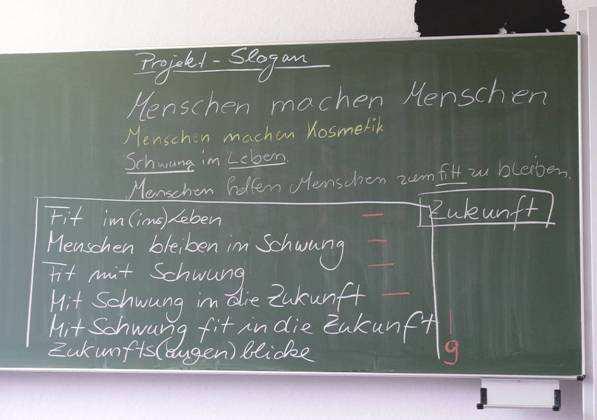 Projekt-Slogan
Menschen machen Menschen
Menschen machen Kosmetik
Schwung im Leben.
Menschen helfen Menschen zum fit zu bleiben.
Fit im (ins) Leben
Zukunft
Menschen bleiben im Schwung
Fit mit Schwung
Mit Schwung in die Zukunft
Mit Schwung fit in die Zukunft
Zukunfts(augen)blicke
9